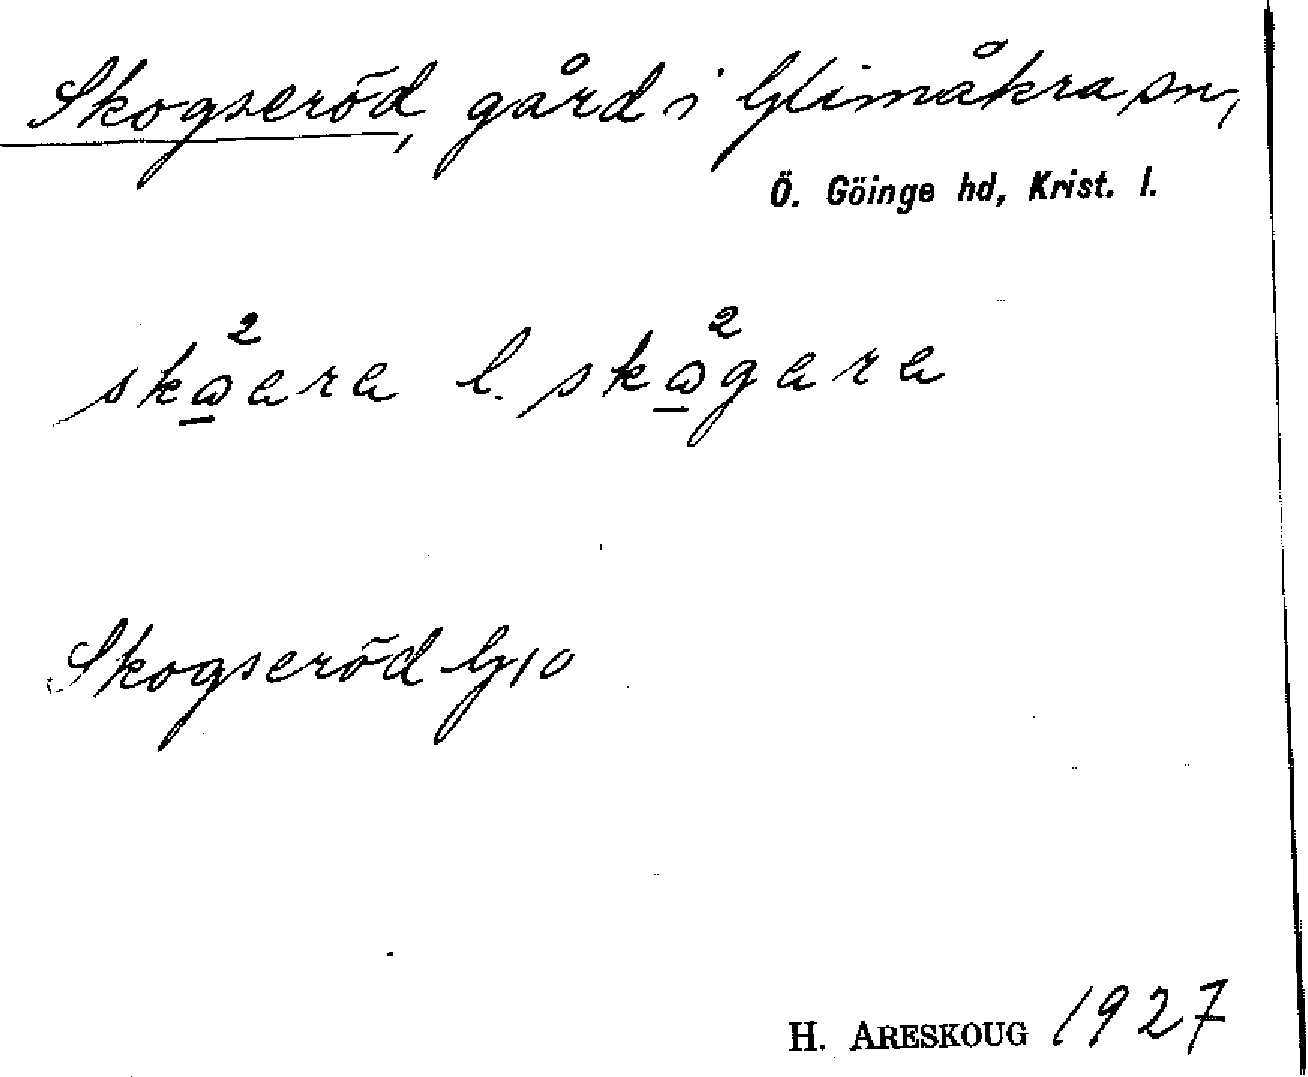 Skogseröd, gård i Glimåkra sn,
Ö. Göinge hd, Krist. l.
skω̲²ara l. skω̲²gara
Skogseröd G10
H. ARESKOUG 1927